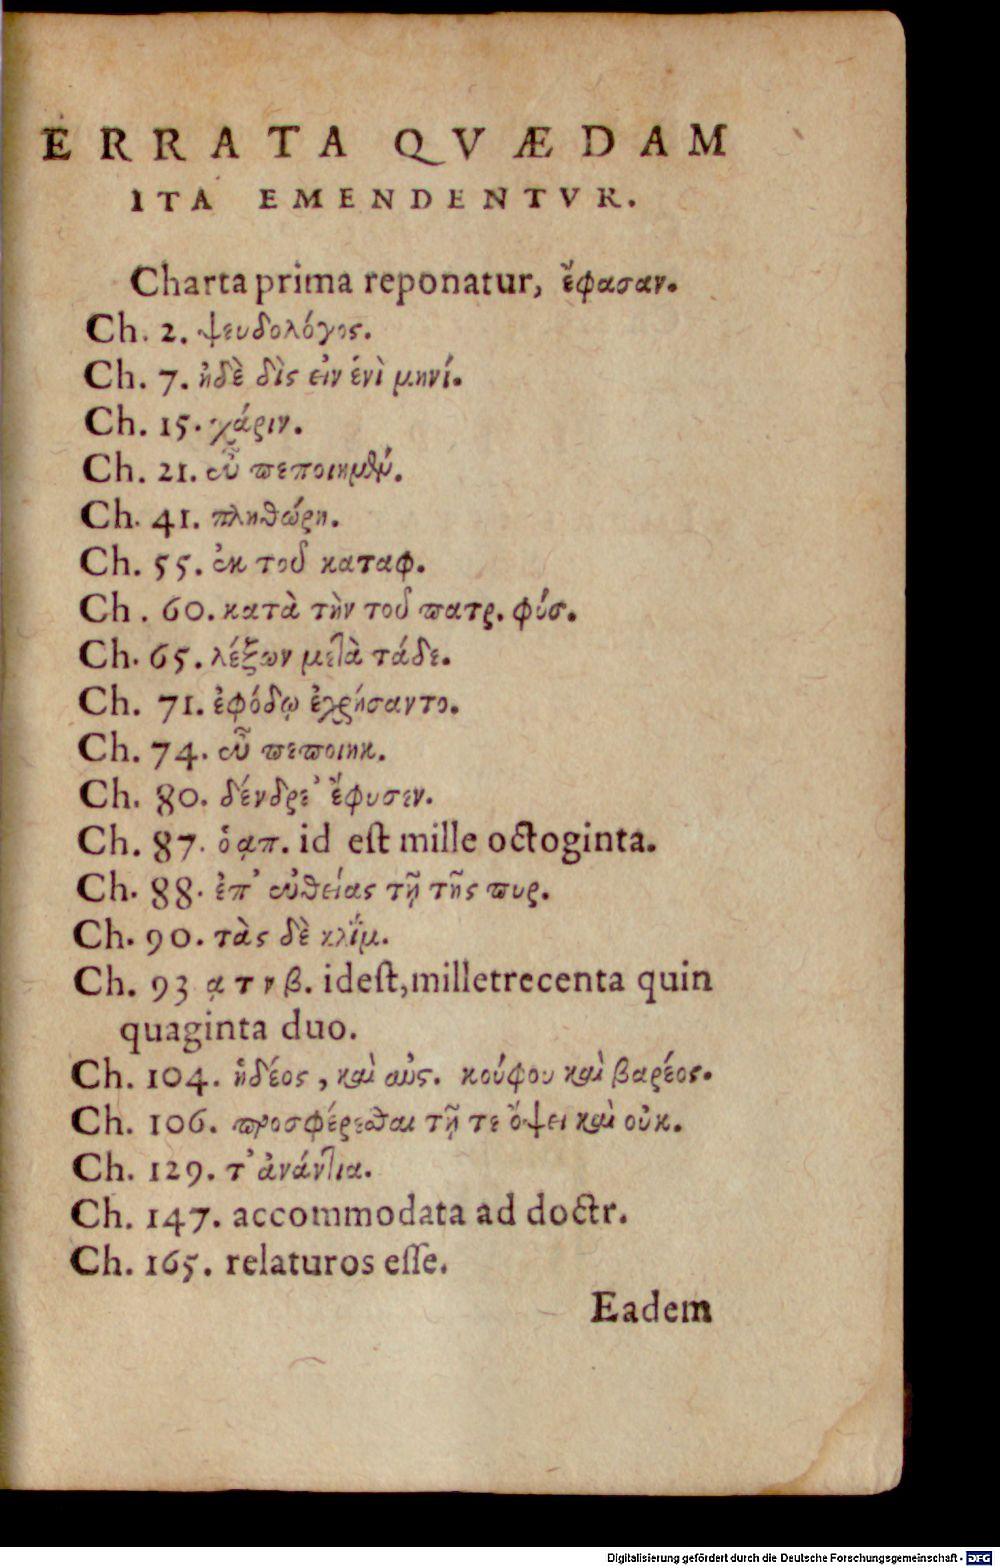 ERRATA QVÆDAM
ITA EMENDENTVR.
Charta prima reponatur, ἔφασαν.
Ch. 2. ψευδολόγος.
Ch. 7. ἠδὲ δὶς εἰν ἑνὶ μηνί.
Ch. 15. χάριν.
Ch. 21. εὖ πεποιημέν.
Ch. 41. πληθώρη.
Ch. 55. ἐκ τοῦ καταφ.
Ch. 60. κατὰ τὴν τοῦ πατρ. φύσ.
Ch. 65. λέξων μετὰ τάδε.
Ch. 71. ἐφόδῳ ἐχρήσαντο.
Ch. 74. εὖ πεποιηκ.
Ch. 80. δένδρε' ἔφυσεν.
Ch. 87. ὁ͵απ. id eſt mille octoginta.
Ch. 88. ἐπ' εὐθείας τῇ τῆς πυρ.
Ch. 90. τὰς δὲ κλίμ.
Ch. 93 ͵ατνβ. ideſt, milletrecenta quin
quaginta duo.
Ch. 104. ἡδέος, καὶ αὐς. κούφου καὶ βαρέος.
Ch. 106. προσφέρεσθαι τῇ τε ὄψει καὶ οὐκ.
Ch. 129. τ' ἀνάντια.
Ch. 147. accommodata ad doctr.
Ch. 165. relaturos eſſe.
Eadem
Digitalisierung gefördert durch die Deutsche Forschungsgemeinschaft - DFG